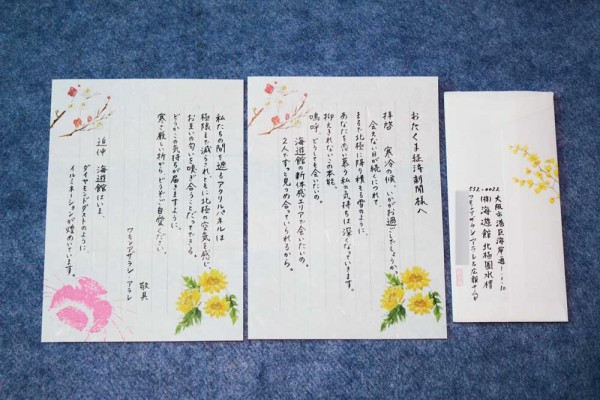 おたくま経済新聞様へ
拝啓 寒冷の候、いかがお過ごしでしょうか。
会えない日が続くにつれて
まるで北極に降り積もる雪のように
あなたを恋い慕う私の気持ちは深くなっていきます。
抑えきれないこの本能。
嗚呼、どうしても会いたいの。
海遊館の新体感エリアで会いたいの。
2人でずっと見つめ合っていられるから。
私たちの間を遮るアクリルパネルは
極限まで減らされ、ともに北極の空気を感じ
お互いの匂いを嗅ぎ合うことだってできる。
どうかこの気持ちが届きますように。
寒さ厳しい折から、どうぞご自愛ください。
敬具
ワモンアザラシ・アラレ
追伸 海遊館はいま、
ダイヤモンドダストのように
イルミネーションが煌めいています。
552-0022
大阪市港区海岸通1-1-10
(株)海遊館 北極圏水槽
ワモンアザラシ アラレ&広報チーム